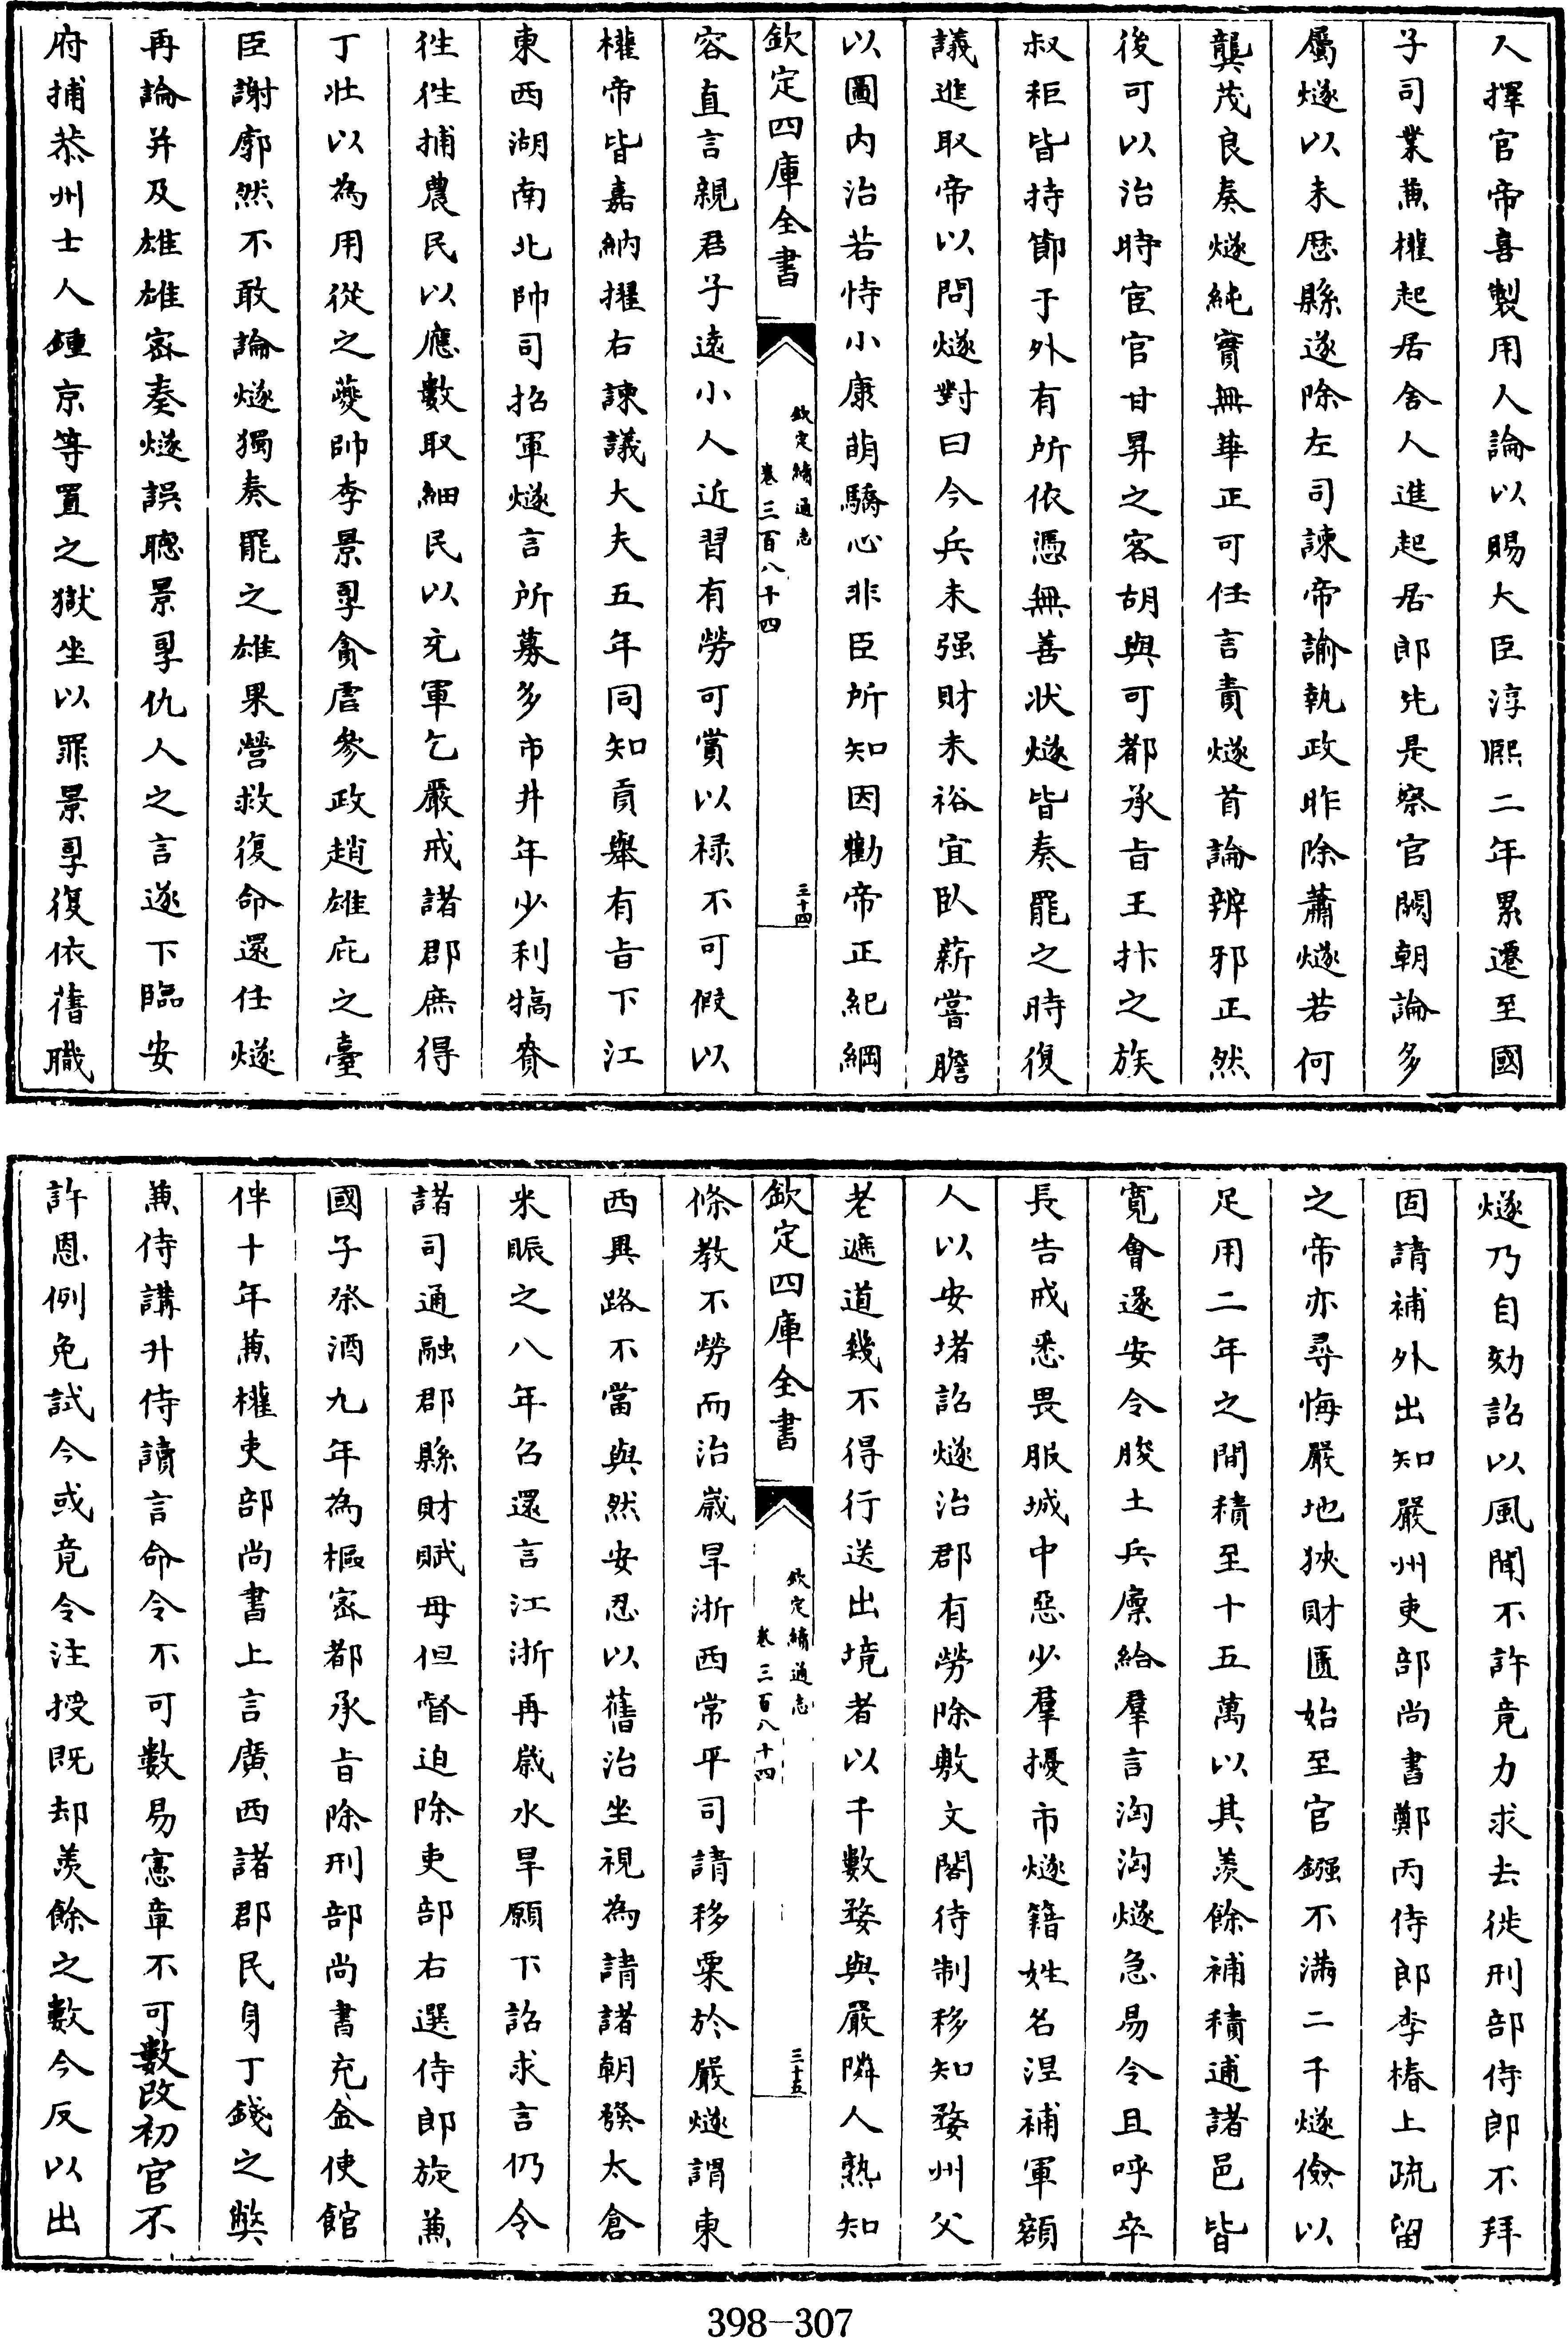 人擇官帝喜製用人論以賜大臣淳熙二年累遷至國
子司業兼權起居舍人進起居郎先是察官闕朝論多
屬燧以未歷縣遂除左司諫帝諭執政昨除蕭燧若何
龔茂良奏燧純實無華正可任言責燧首論辨邪正然
後可以治時宦官甘昇之客胡與可都承旨王抃之族
叔秬皆持節于外有所依憑無善狀燧皆奏罷之時復
議進取帝以問燧對曰今兵未强財未裕宜臥薪嘗膽
以圖內治若恃小康萌驕心非臣所知因勸帝正紀綱
欽定四庫全書
欽定續通志
卷三百八十四
三十四
容直言親君子遠小人近習有勞可賞以祿不可假以
權帝皆嘉納擢右諫議大夫五年同知貢舉有旨下江
東西湖南北帥司招軍燧言所募多市井年少利犒賚
徃徃捕農民以應數取細民以充軍乞嚴戒諸郡庶得
丁壯以為用從之夔帥李景㝊貪虐參政趙雄庇之臺
臣謝廓然不敢論燧獨奏罷之雄果營救復命還任燧
再論并及雄雄密奏燧誤聽景㝊仇人之言遂下臨安
府捕恭州士人鍾京等置之獄坐以罪景㝊復依舊職
燧乃自劾詔以風聞不許竟力求去徙刑部侍郎不拜
固請補外出知嚴州吏部尚書鄭丙侍郎李椿上疏留
之帝亦尋悔嚴地狹財匱始至官鏹不滿二千燧儉以
足用二年之間積至十五萬以其羨餘補積逋諸邑皆
寛會遂安令朘土兵廩給羣言洶洶燧急易令且呼卒
長告戒悉畏服城中惡少羣擾市燧籍姓名涅補軍額
人以安堵詔燧治郡有勞除敷文閣待制移知婺州父
老遮道幾不得行送出境者以千數婺與嚴隣人熟知
欽定四庫全書
欽定續通志
卷三百八十四
三十五
條教不勞而治歲旱浙西常平司請移粟於嚴燧謂東
西異路不當與然安忍以舊治坐視為請諸朝發太倉
米賑之八年召還言江浙再歲水旱願下詔求言仍令
諸司通融郡縣財賦毋但督迫除吏部右選侍郎旋兼
國子祭酒九年為樞密都承旨除刑部尚書充金使館
伴十年兼權吏部尚書上言廣西諸郡民身丁錢之弊
兼侍講升侍讀言命令不可數易憲章不可數改初官不
許恩例免試今或竟令注授既却羨餘之數今反以出
398-307